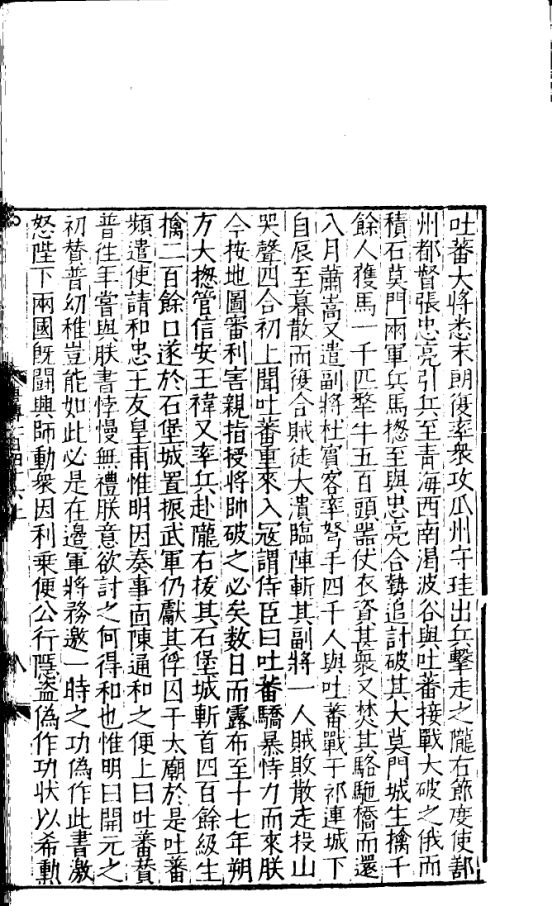 吐蕃大將悉末朗復率衆攻瓜州守珪出兵擊走之隴右節度使鄯
州都督張忠亮引兵至青海西南渴波谷與吐蕃接戰大破之俄而
積石莫門兩軍兵馬揔至與忠亮合勢追討破其大莫門城生擒千
餘人獲馬一千匹犛牛五百頭器仗衣資甚衆又焚其駱駞橋而還
八月蕭嵩又遣副將杜賓客率弩手四千人與吐蕃戰于祁連城下
自辰至暮散而復合賊徒大潰臨陣斬其副將一人賊敗散走投山
哭聲四合初上聞吐蕃重來入寇謂侍臣曰吐蕃驕暴恃力而來朕
今按地圖審利害親指授將帥破之必矣数日而露布至十七年朔
方大揔管信安王禕又率兵赴隴右拔其石堡城斬首四百餘級生
擒二百餘口遂於石堡城置振武軍仍獻其俘囚于太廟於是吐蕃
頻遣使請和忠王友皇甫惟明因奏事面陳通和之便上曰吐蕃贊
普徃年嘗與朕書悖慢無禮朕意欲討之何得和也惟明曰開元之
初賛普幼稚豈能如此必是在邊軍將務邀一時之功偽作此書激
怒陛下兩國旣鬬興師動衆因利乗便公行隱盗偽作功狀以希勲
八